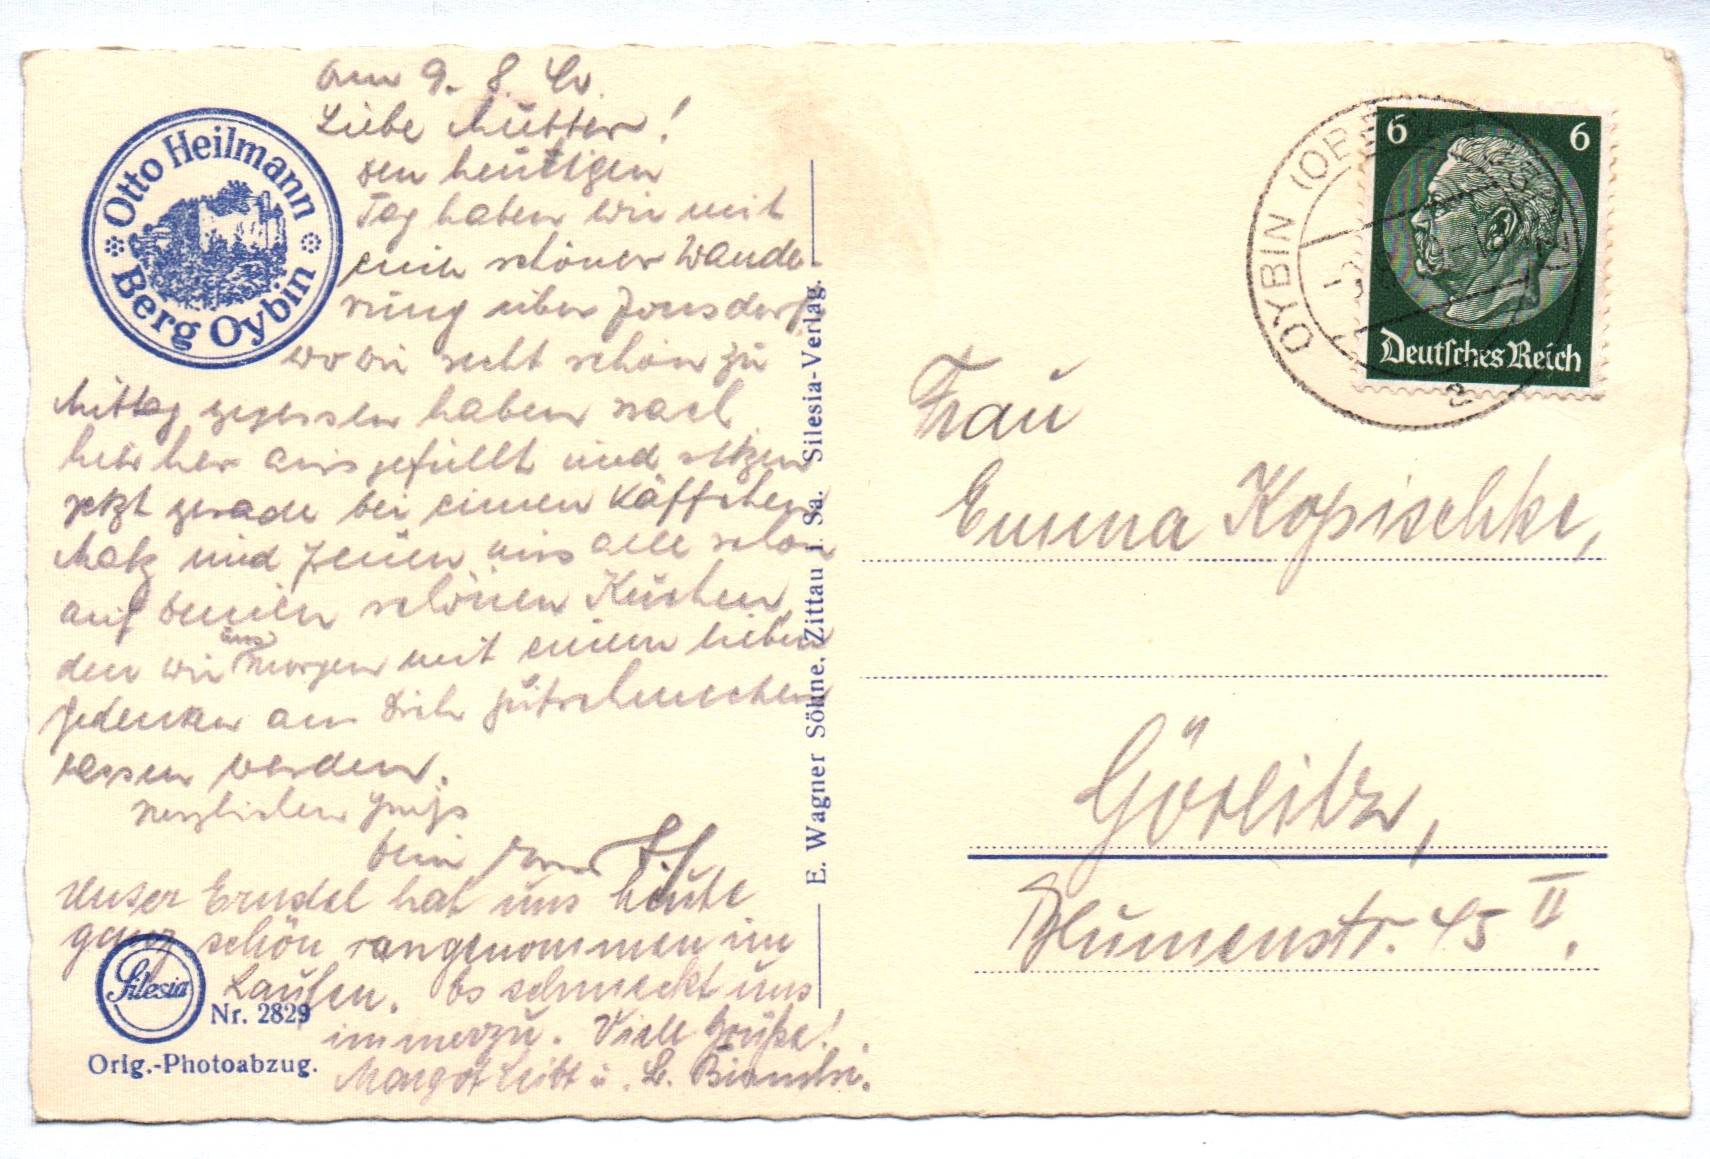 Am 9. 8. 40.
Liebe Mutter!
den heutigen
Tag haben wir mit
einer schöner Wande-
rung über Jonsdorf
wo wir recht schön zu
Mittag gegessen haben nach
her ausgefüllt und sitzen
jetzt gerade bei einen Käffchen
und freuen uns alle schon
auf deinen schönen Kuchen,
den wir uns Morgen mit einem lieben
Gedenken an Dich gutschmecken
lassen werden.
Herzlichen Gruß
Dein
Unser hat uns heute
ganz schön rangenommen im
Laufen. Es schmeckt uns
immerzu. Viele Grüße!
Margot u.
Otto Heilmann
Berg Oybin
Silesia
Nr. 2829
Orig.-Photoabzug.
E. Wagner Söhne, Zittau i. Sa. Silesia-Verlag.
OYBIN
6 6
Deutsches Reich
Frau
Emma Kopischke,
Görlitz,
Blumenstr. 45 II.